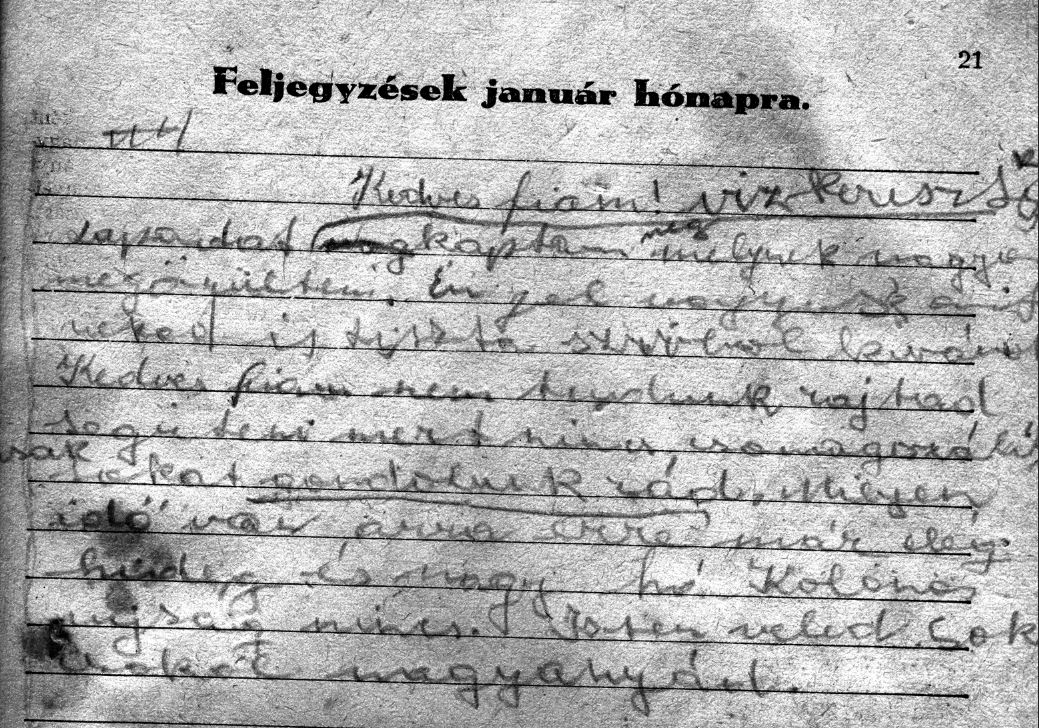 21
Feljegyzések január hónapra.
Kedves fiam! viz kereszt
lapodat kaptam meg melynek nagyon
megörültem. Én jol vagyunk amit
neked is tiszta szivböl kivánok
Kedves fiam nem tudunk rajtad
segiteni mert nincs csomagszálitás
csak sokat gondolunk rád. Milyen
idő van arra erre már elég
hideg és nagy hó Kölönös
ujság nincs. Isten veled Sok
csokol nagyanyád.